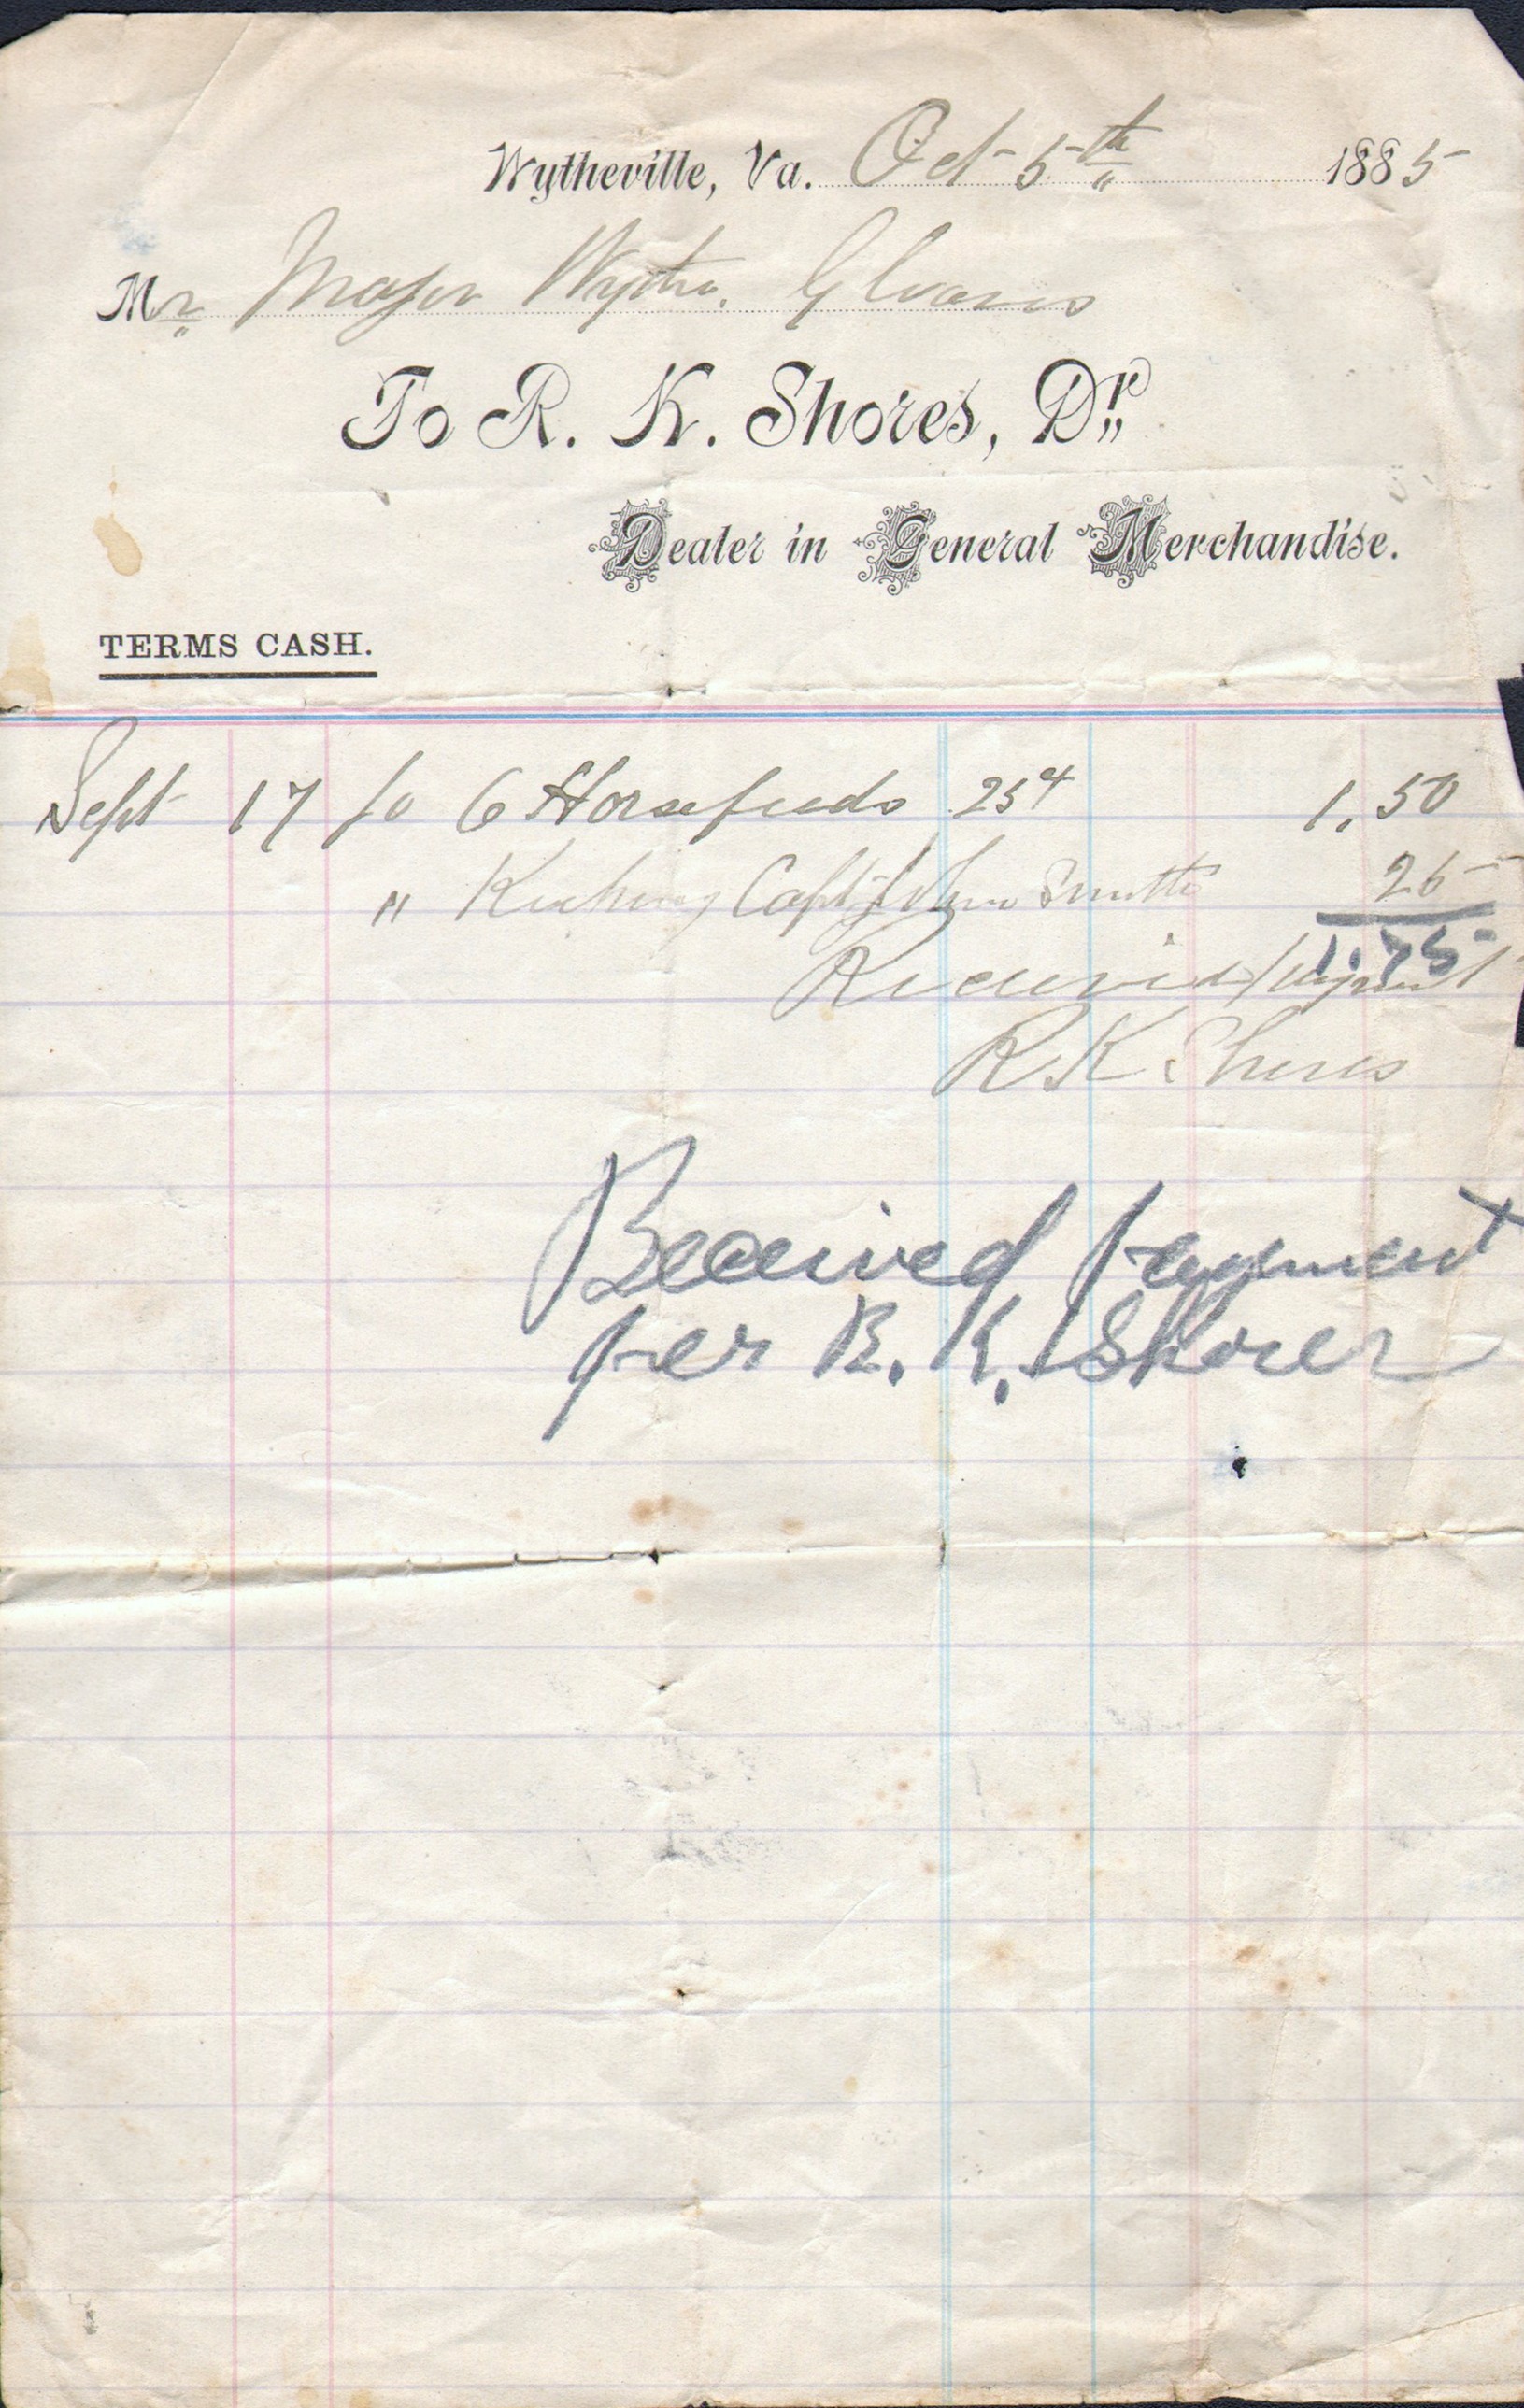 Wytheville, Va. Oct 5th 1885
Mr Major Wythe. G
To R. K. Shores, Dr.
Dealer in General Merchandise.
TERMS CASH.
Sept 17 to 6 Horsefeeds 25¢ 1,50
" Capt John Smith 25
1.75
Received payment
R K Shores
Received payment
per R. K. Shores